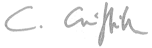 C. Griffith